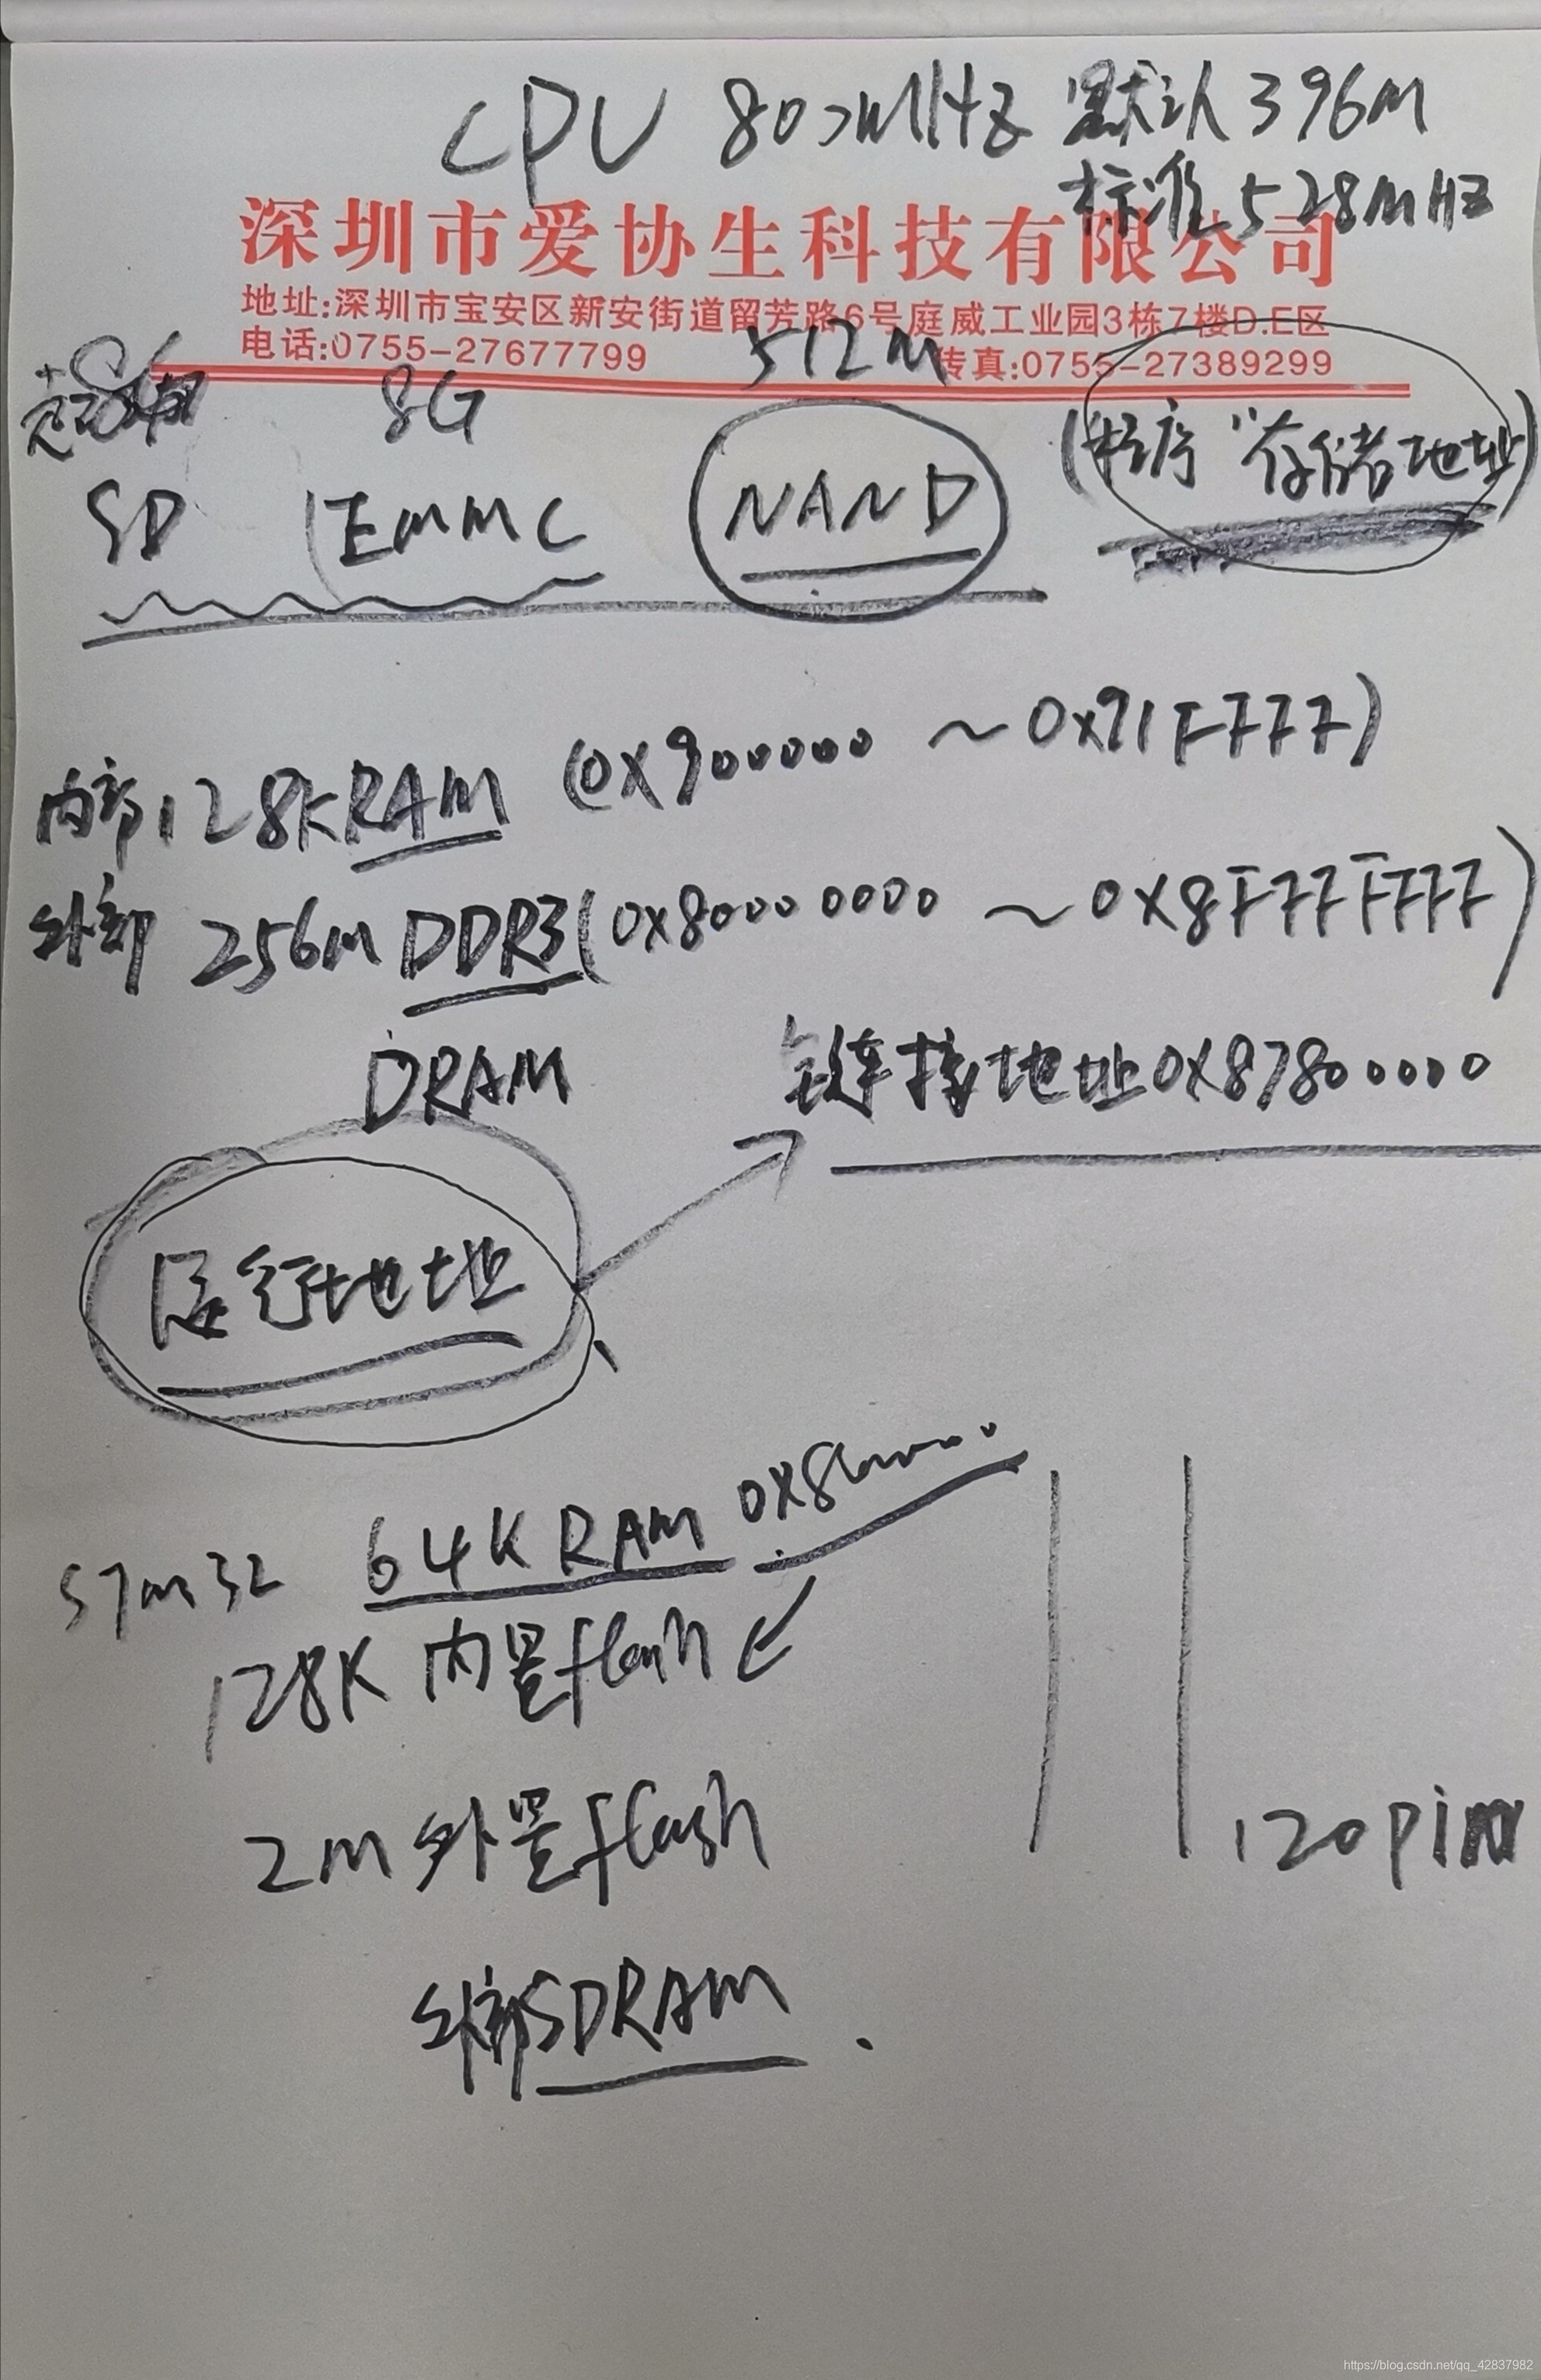 CPU 80>MHz 默认396M
标准528MHZ
深圳市爱协生科技有限公司
地址:深圳市宝安区新安街道留芳路6号庭威工业园3栋7楼D.E区
电话:0755-27677799 传真:0755-27389299
8G 512M
SD EMMC NAND (程序"存储地址)
内部128KRAM (0X900000 ~0X91FFFF)
外部 256M DDR3(0X80000000 ~0X8FFFFFFF)
DRAM 链接地址0X87800000
运行地址
STM32 64K RAM
128K 内置flash
2M 外置flash
120pin
外部SDRAM
https://blog.csdn.net/qq_42837982